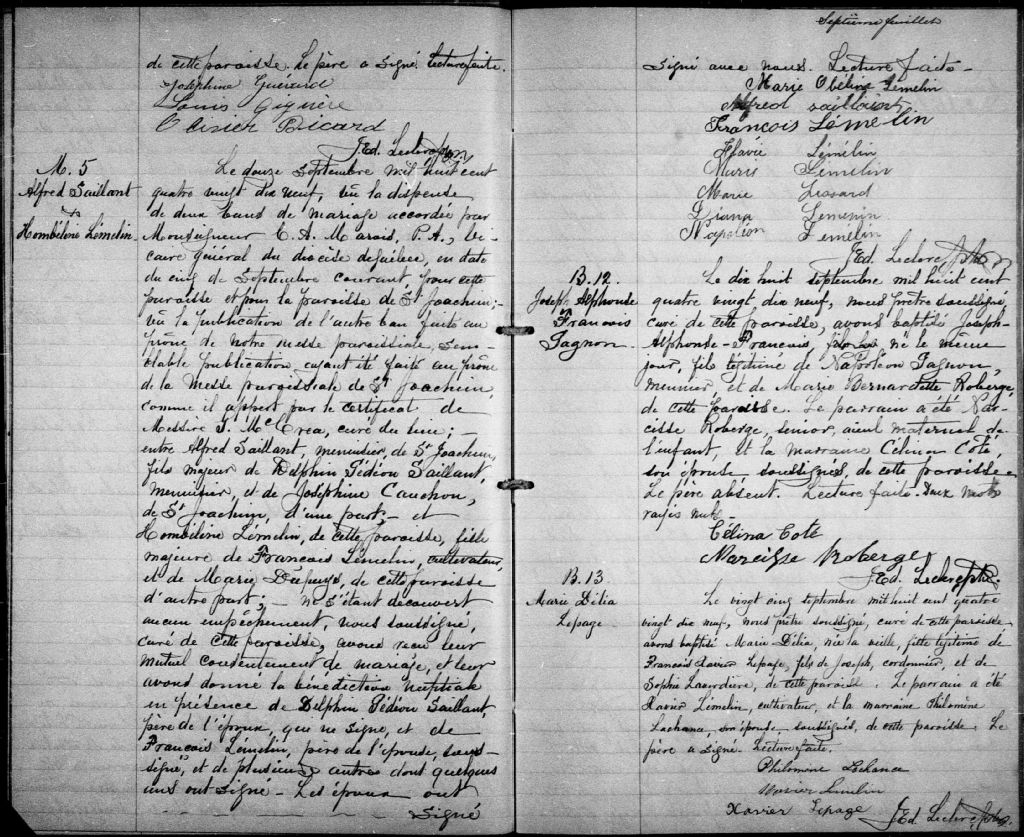 de cette paroisse. Le père a signé. Lecture faite.
Joséphine Guérard
Louis Giguère
Olivier Picard
J.Ed. Leclerc ptre.
M. 5
Alfred Saillant
&
Hombéline Lémelin
Le douze Septembre mil huit cent
quatre vingt dix neuf, vû la dispense
de deux bans de mariage accordée par
Monseigneur C. A. Marois, P. A., Vi-
caire général du diocèse de Québec, en date
du cinq de Septembre courant, pour cette
paroisse et pour la paroisse de St Joachim;
vû la publication de l'autre ban faite au
prône de notre messe paroissiale, sem-
blable publication ayant été faite au prône
de la Messe paroissiale de St Joachim,
comme il appert par le certificat de
Messire J. McCrea, curé du lieu; -
entre Alfred Saillant, menuisier, de St Joachim,
fils majeur de Delphin Gédéon Saillant,
menuisier, et de Joséphine Cauchon,
de St Joachim, d'une part; - et
Hombéline Lémelin, de cette paroisse, fille
majeure de François Lémelin, cultivateur,
et de Marie Dupuys, de cette paroisse
d'autre part; - ne s'étant découvert
aucun empêchement, nous soussigné,
curé de cette paroisse, avons reçu leur
mutuel consentement de mariage, et leur
avons donné la bénédiction nuptiale
en présence de Delphin Gédéon Saillant,
père de l'époux, qui ne signe, et de
François Lémelin, père de l'épouse, sous-
signé, et de plusieurs autres dont quelques
uns ont signé - Les époux ont
signé
Septième feuillet
signé avec nous. Lecture faite -
Marie Obéline Lémelin
Alfred Saillant
François Lémelin
Lémélin
Marie Lémelin
Marie Lessard
Diana Lemelin
Napoléon Lemélin
J.Ed. Leclerc ptre.
B. 12
Joseph Alphonse
François
Gagnon
Le dix huit septembre mil huit cent
quatre vingt dix neuf, nous prêtre soussigné,
curé de cette paroisse, avons baptisé Joseph-
Alphonse-François, né le même
jour, fils légitime de Napoléon Gagnon,
meunier, et de Marie Bernardette Roberge,
de cette paroisse. Le parrain a été Nar-
cisse Roberge, senior, aïeul maternel de
l'enfant, et la marraine Célina Coté,
son épouse soussignés, de cette paroisse.
Le père absent. Lecture faite. Deux mots
rayés nuls -
Célina Coté
Narcisse Roberge
J.Ed. Leclerc ptre.
B. 13
Marie Délia
Lepage
Le vingt cinq septembre mil huit cent quatre
vingt dix neuf, nous prêtre soussigné, curé de cette paroisse,
avons baptisé Marie Délia, née la veille, fille légitime de
François Xavier Lepage, fils de Joseph, cordonnier, et de
Sophie Laverdière, de cette paroisse. Le parrain a été
Xavier Lémelin, cultivateur, et la marraine Philomène
Lachance, son épouse, soussignés, de cette paroisse. Le
père a signé. Lecture faite.
Philomène Lachance
Xavier Lemelin
Xavier Lepage
J.Ed. Leclerc ptre.